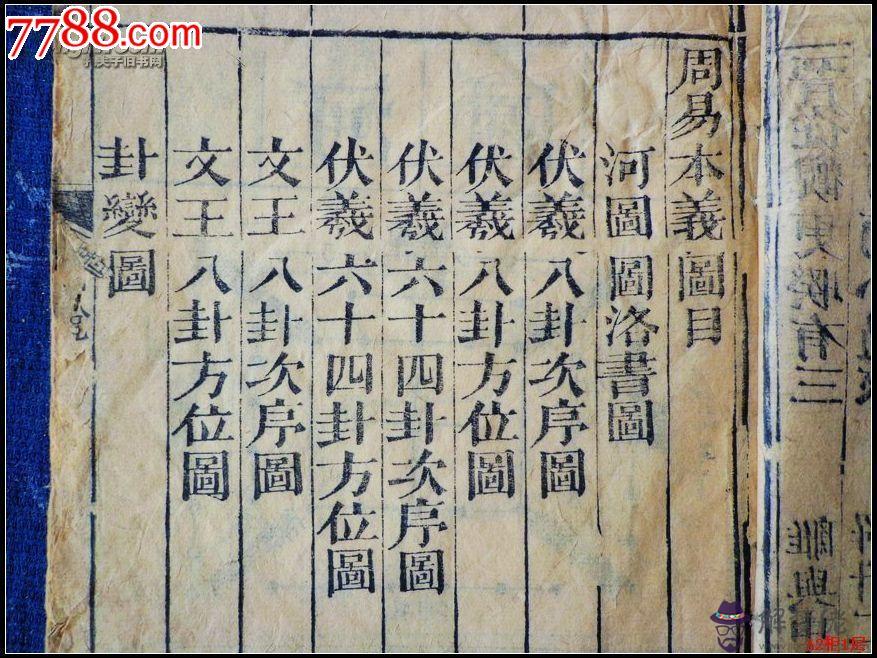 周易本義圖目
河圖圖洛書圖
伏羲八卦次序圖
伏羲八卦方位圖
伏羲六十四卦次序圖
伏羲六十四卦方位圖
文王八卦次序圖
文王八卦方位圖
卦變圖
7788.com